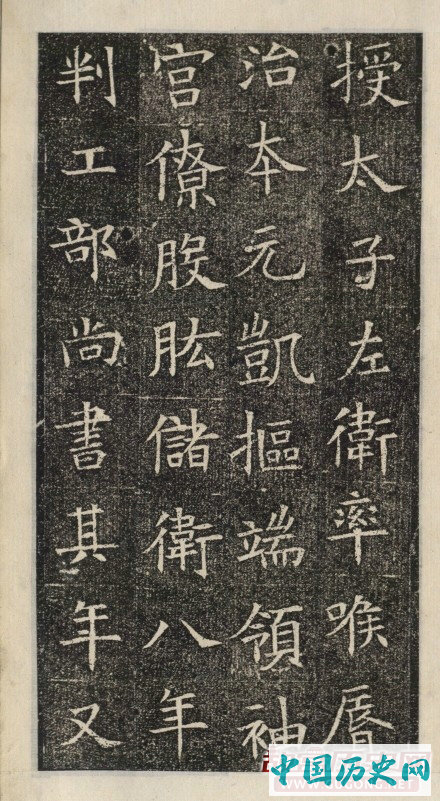 授太子左衛率喉脣
治本元凱摳端領袖
官僚股肱儲衛八年
判工部尚書其年又
中国历史网